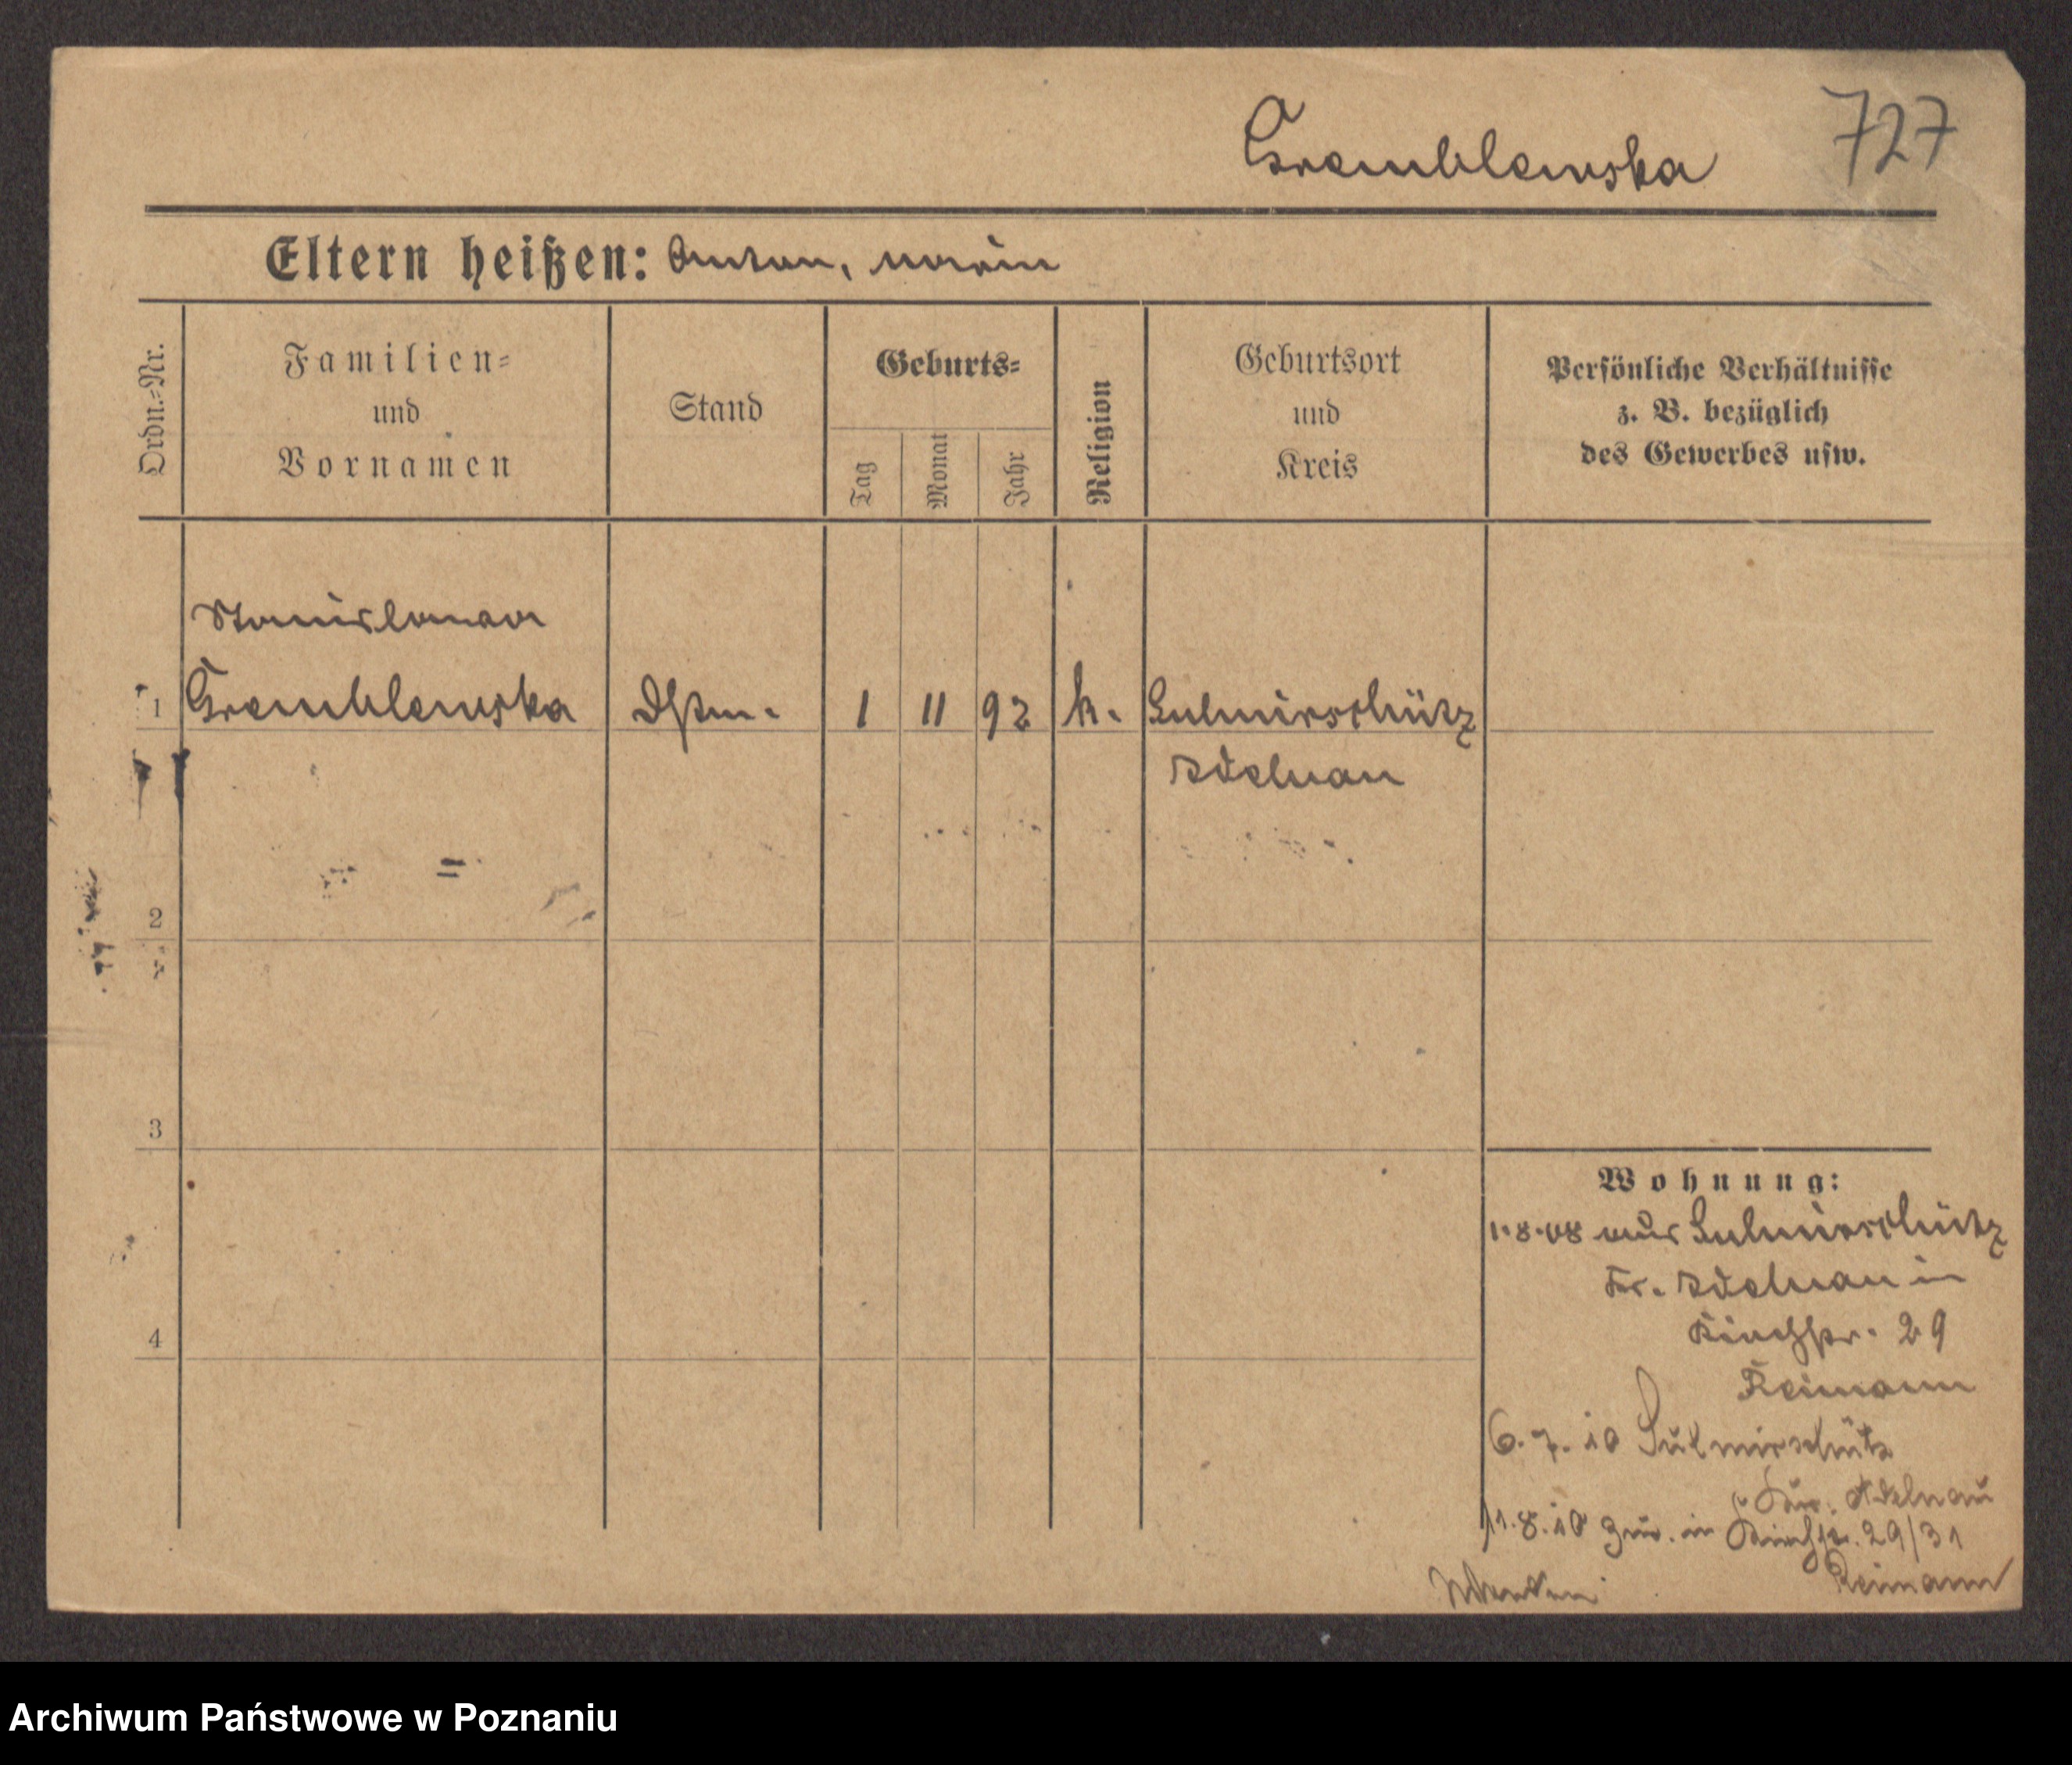 Gremblewska 727
Eltern heißen: Anton, Maria
Ordn.-Nr.
Familien-
und
Vornamen
Stand
Geburts-
Tag
Monat
Jahr
Religion
Geburtsort
und
Kreis
Persönliche Verhältnisse
z. B. bezüglich
des Gewerbes usw.
Stanislawa
1 Gremblewska 1 11 92 k. Sulmirschütz
Adelnau
2
3
4
Wohnung:
1.8.08 aus Sulmirschütz
Kr. Adelnau in
Kirchstr. 29
Reimann
6.7.10 Sulmirschütz
Adelnau
11.8.10 zur. in Kirchstr. 29/31
Reimann
Archiwum Państwowe w Poznaniu